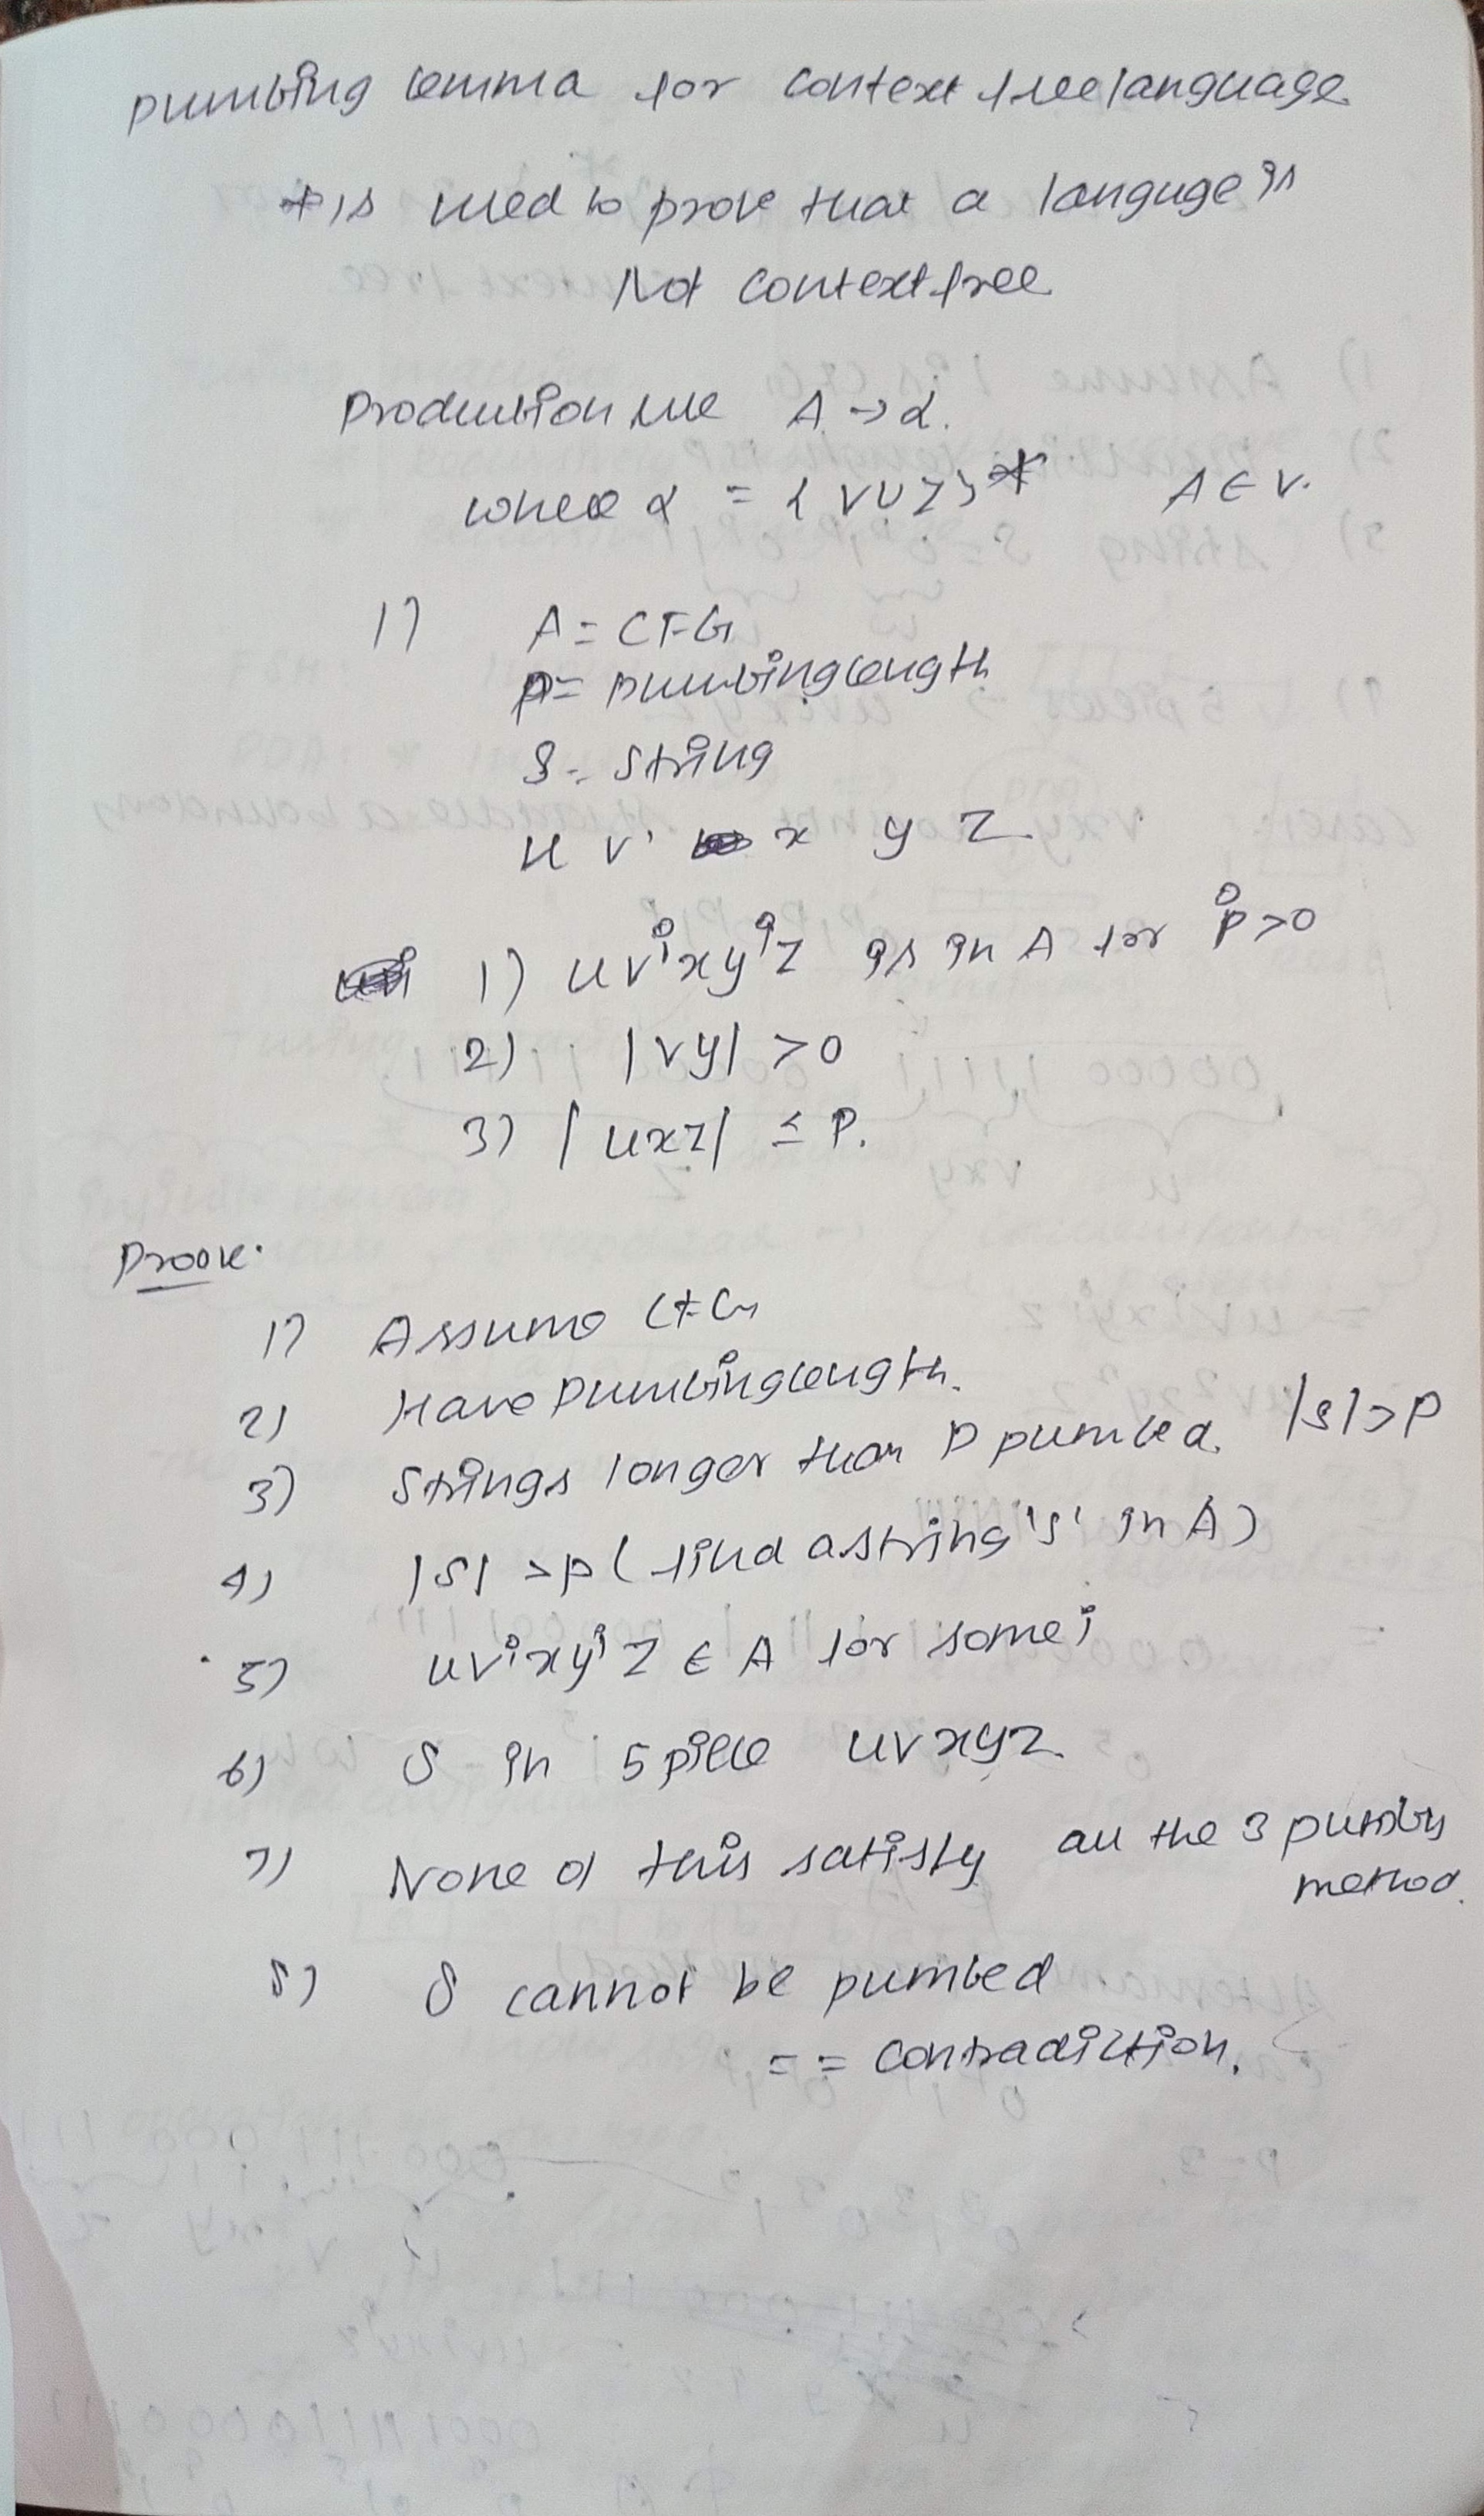 pumbing lemma for context free language
*is used to prove that a languge is
Not context free
Production rule A → α.
where α = { V U Σ }* A ∈ V.
1) A = CFG
p = pumbing length
S = string
u v x y z
1) uvⁱxyⁱz is in A for i>0
2) |vy| >0
3) | uxz| ≤ P.
Proove.
1) Assume CFG
2) Have Pumbing length.
3) Strings longer than P pumbed. |s|>P
4) |S| >p ( find a string 's' in A)
5) uvⁱxyⁱz ∈ A for some i
6) S in 5 piece uvxyz.
7) None of this satisfy all the 3
method.
8) S cannot be pumbed
= = contradiction.